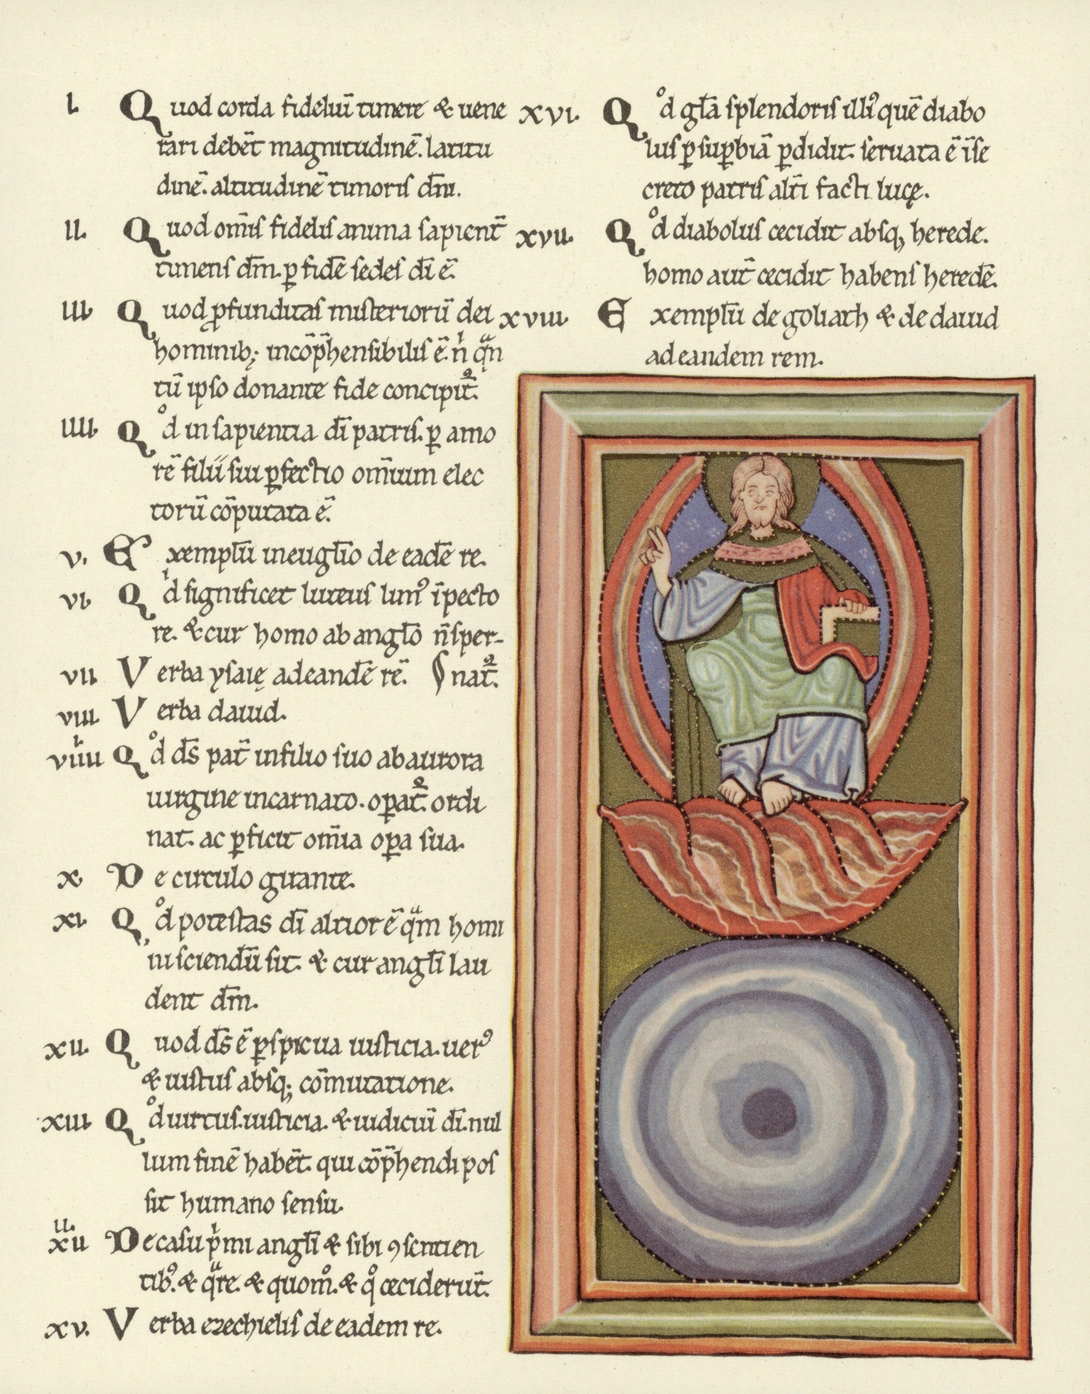 I. Quod corda fideliū timere & uene
rari debēt magnitudinē. latitu
dinē. altitudinē timoris dm̄.
II. Quod om̄is fidelis anima sapient̄
timens dm̄. ꝑ fidē sedes dī ē.
III. Quod ꝓfunditas misteriorū dei
hominibꝫ incōp̄hensibilis ē. nͥ qͣn
tū ipso donante fide concipit᷒.
IIII. Qͦd in sapientia dī patris. ꝑ amo
rē filii sui ꝑfectio omniū elec
torū cōputata ē.
V. Exemplū in euglīo de eadē re.
VI. Qͥd significet luteus limꝰ ī pecto
re. & cur homo ab anglō n̄ sper-
VII. Verba ysaię ad eandē rē. nat᷒.
VIII. Verba dauid.
VIIII. Qͦd ds̄ pat̄ in filio suo ab aurora
uirgine incarnato. oꝑat᷒. ordi
nat. ac ꝑficit om̄ia oꝑa sua.
X. De circulo girante.
XI. Qͦd potestas dī altior ē qͣm homi
ni sciendū sit. & cur anglī lau
dent dm̄.
XII. Quod ds̄ ē ꝑspicua iusticia. uerꝰ
& iustus absqꝫ cōmutatione.
XIII. Qͦd uirtus. iusticia. & iudiciū dī. nul
lum finē habēt. qui cōp̄hendi pos
sit humano sensu.
XIIII. De casu pͥmi anglī & sibi ꝯsentien
tibꝰ. & qͣre. & quomͦ. & qͦ ceciderūt.
XV. Verba ezechielis de eadem re.
XVI. Qͦd glā splendoris illiꝰ quē diabo
lus ꝑ suꝑbiā ꝑdidit. seruata ē ī se
creto patris alt̄i facti lucę.
XVII. Qͦd diabolus cecidit absqꝫ herede.
homo aut̄ cecidit habens heredē.
XVIII. Exemplū de goliath & de dauid
ad eandem rem.